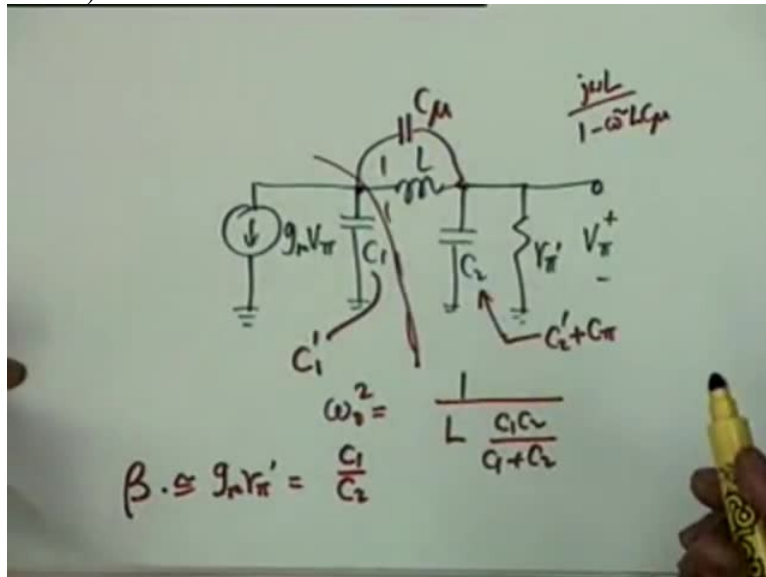 jωL / 1-ω²LCμ
Cμ
L
gₘVπ
C₁
C₂
rπ'
Vπ
+
-
C₁'
C₂'+Cπ
ω₀² = 1 / L C₁C₂ / C₁+C₂
β ≅ gₘrπ' = C₁ / C₂